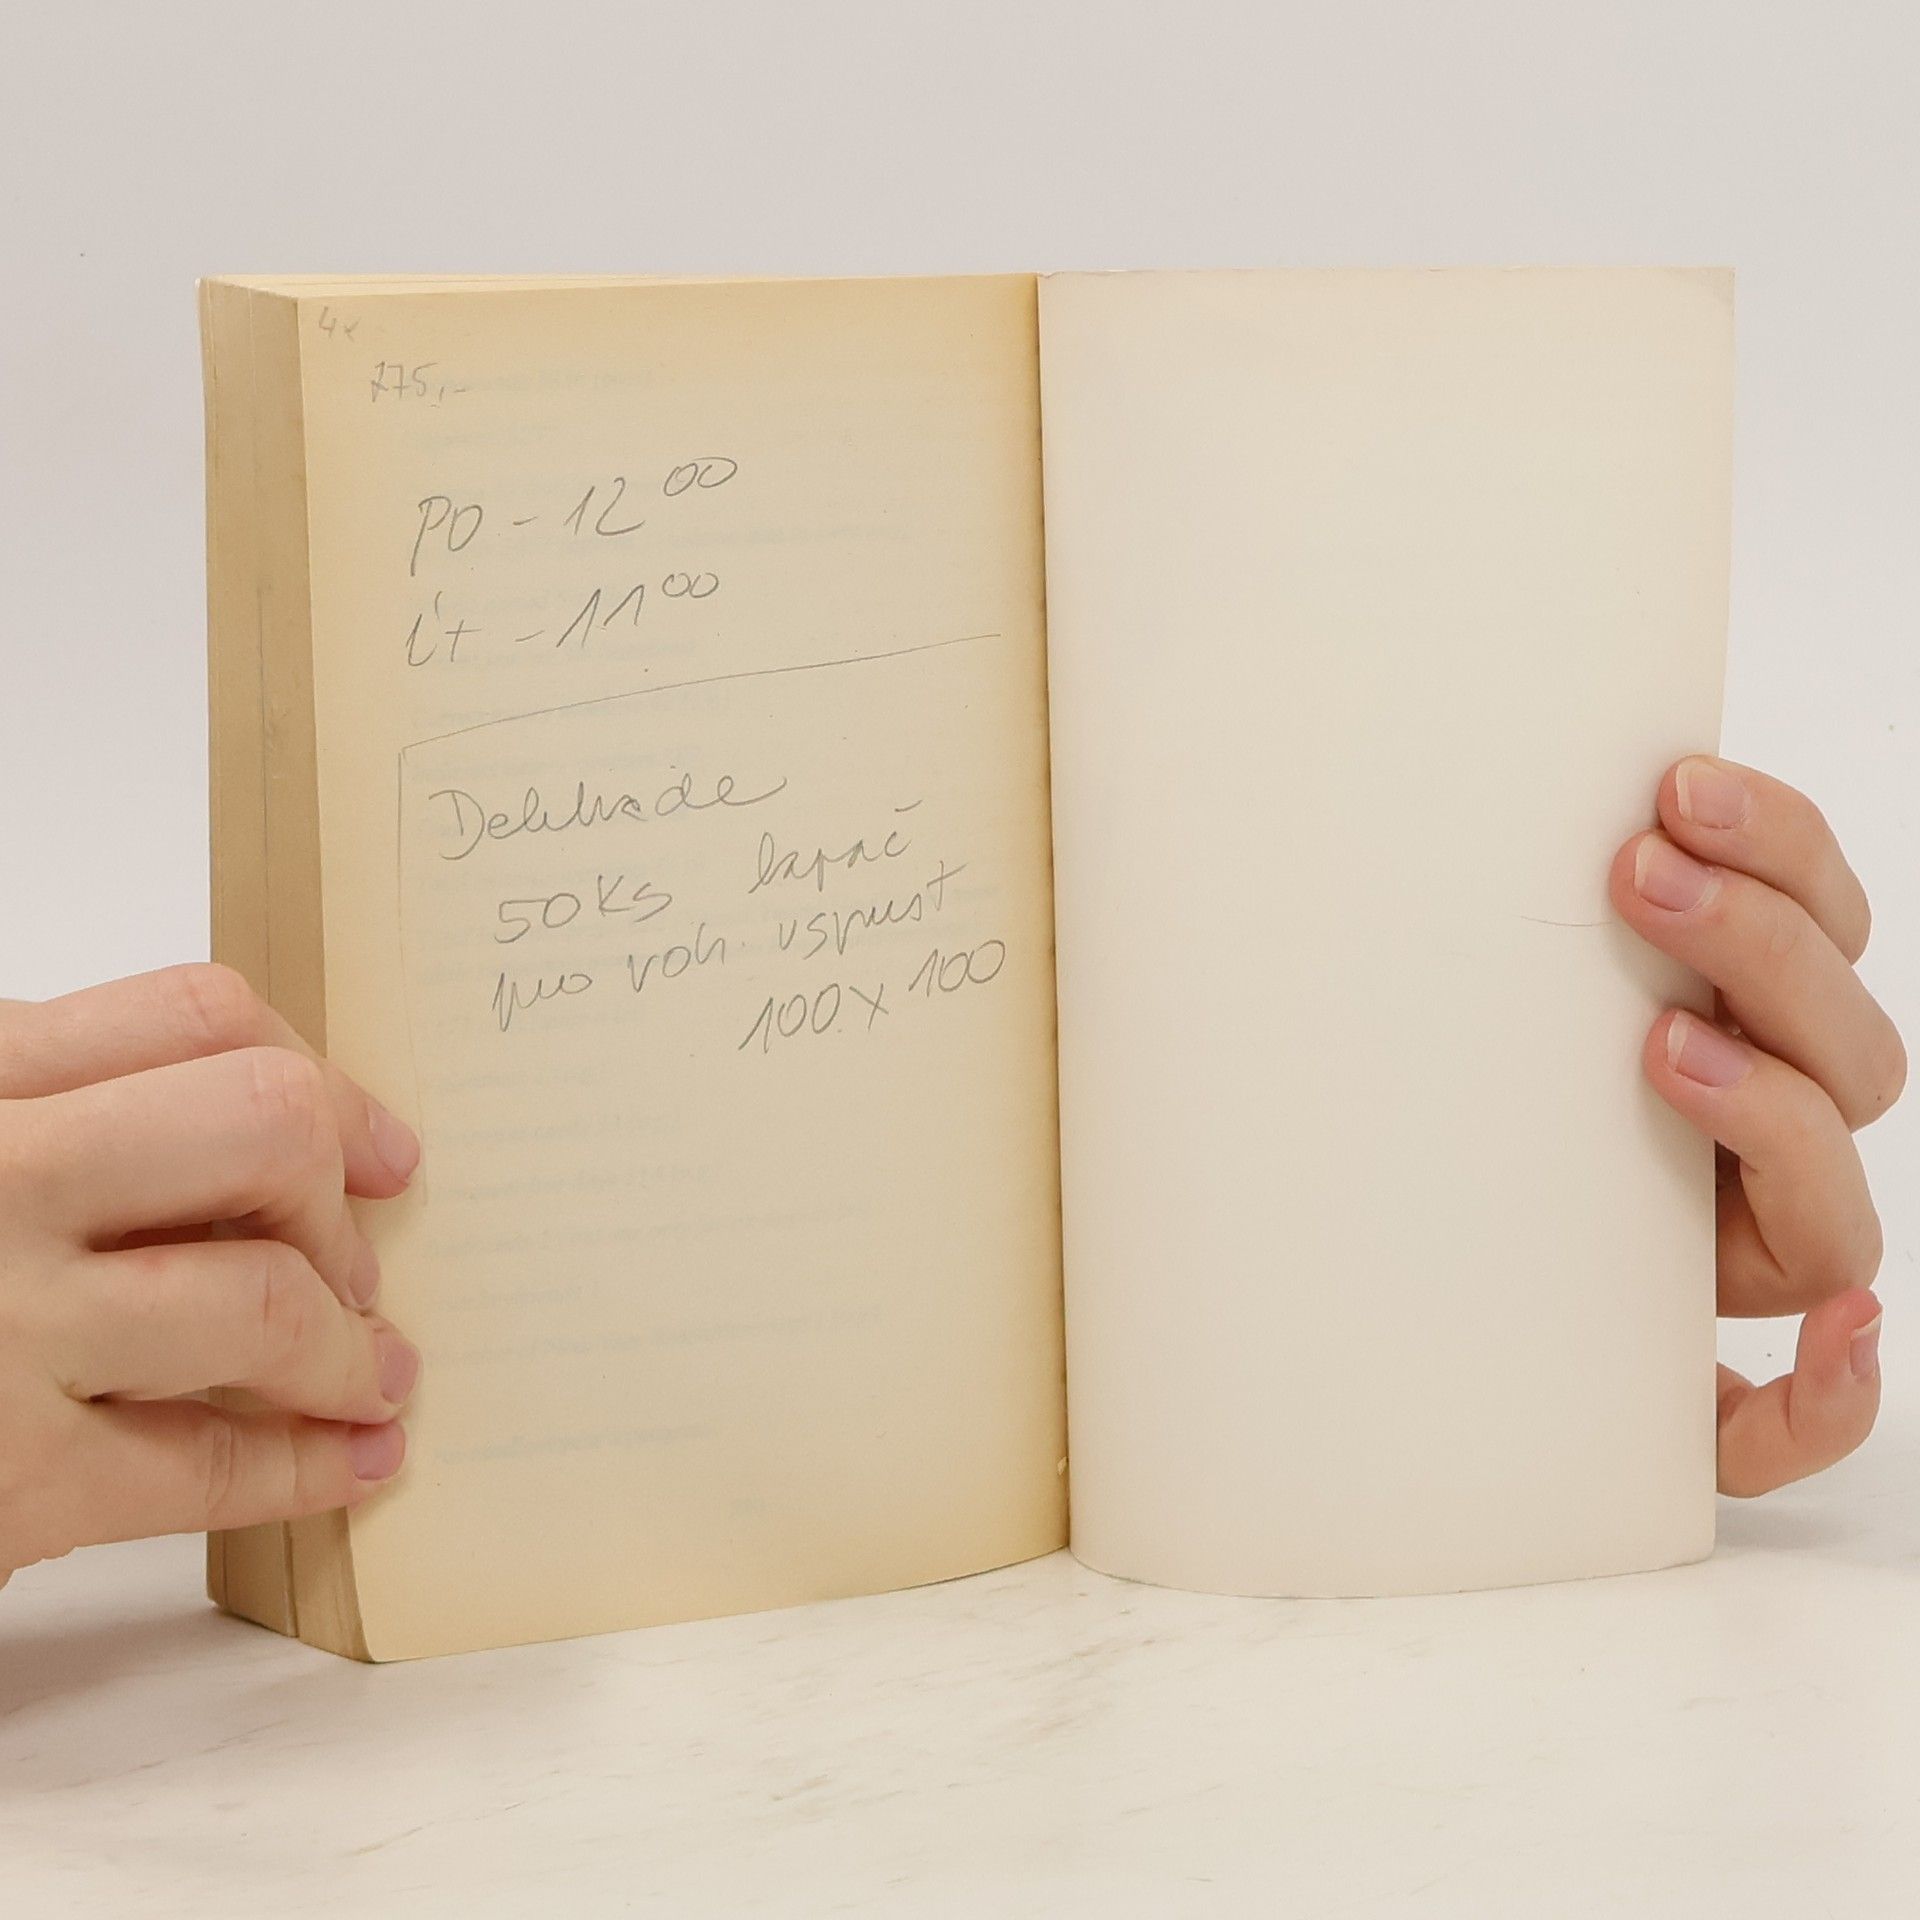 4x
275,-
PO - 12 00
Út - 11 00
50 ks lapač
pro voh. vspust
100 x 100